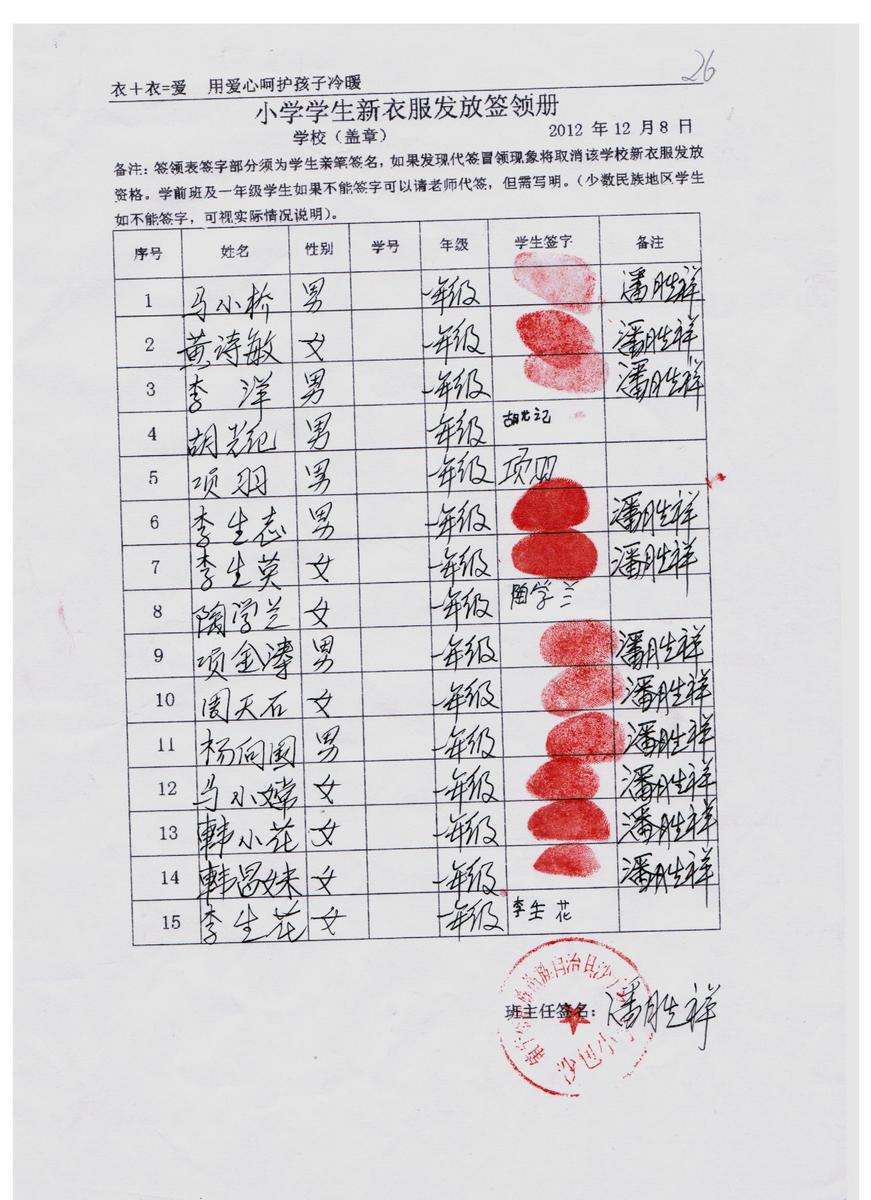 26
衣＋衣=爱 用爱心呵护孩子冷暖
小学学生新衣服发放签领册
学校（盖章） 2012 年 12 月 8 日
备注：签领表签字部分须为学生亲笔签名，如果发现代签冒领现象将取消该学校新衣服发放
资格。学前班及一年级学生如果不能签字可以请老师代签，但需写明。（少数民族地区学生
如不能签字，可视实际情况说明）。
序号 姓名 性别 学号 年级 学生签字 备注
1 马小桥 男 一年级 潘胜祥
2 黄诗敏 女 一年级 潘胜祥
3 李洋 男 一年级 潘胜祥
4 胡光纪 男 一年级 胡光记
5 项羽 男 一年级 项羽
6 李生志 男 一年级 潘胜祥
7 李生英 女 一年级 潘胜祥
8 陶学兰 女 一年级 陶学兰
9 项金涛 男 一年级 潘胜祥
10 周天石 女 一年级 潘胜祥
11 杨向国 男 一年级 潘胜祥
12 马小嫦 女 一年级 潘胜祥
13 韩小花 女 一年级 潘胜祥
14 韩昌妹 女 一年级 潘胜祥
15 李生花 女 一年级 李生花
班主任签名：潘胜祥
族自治县沙
沙包小学